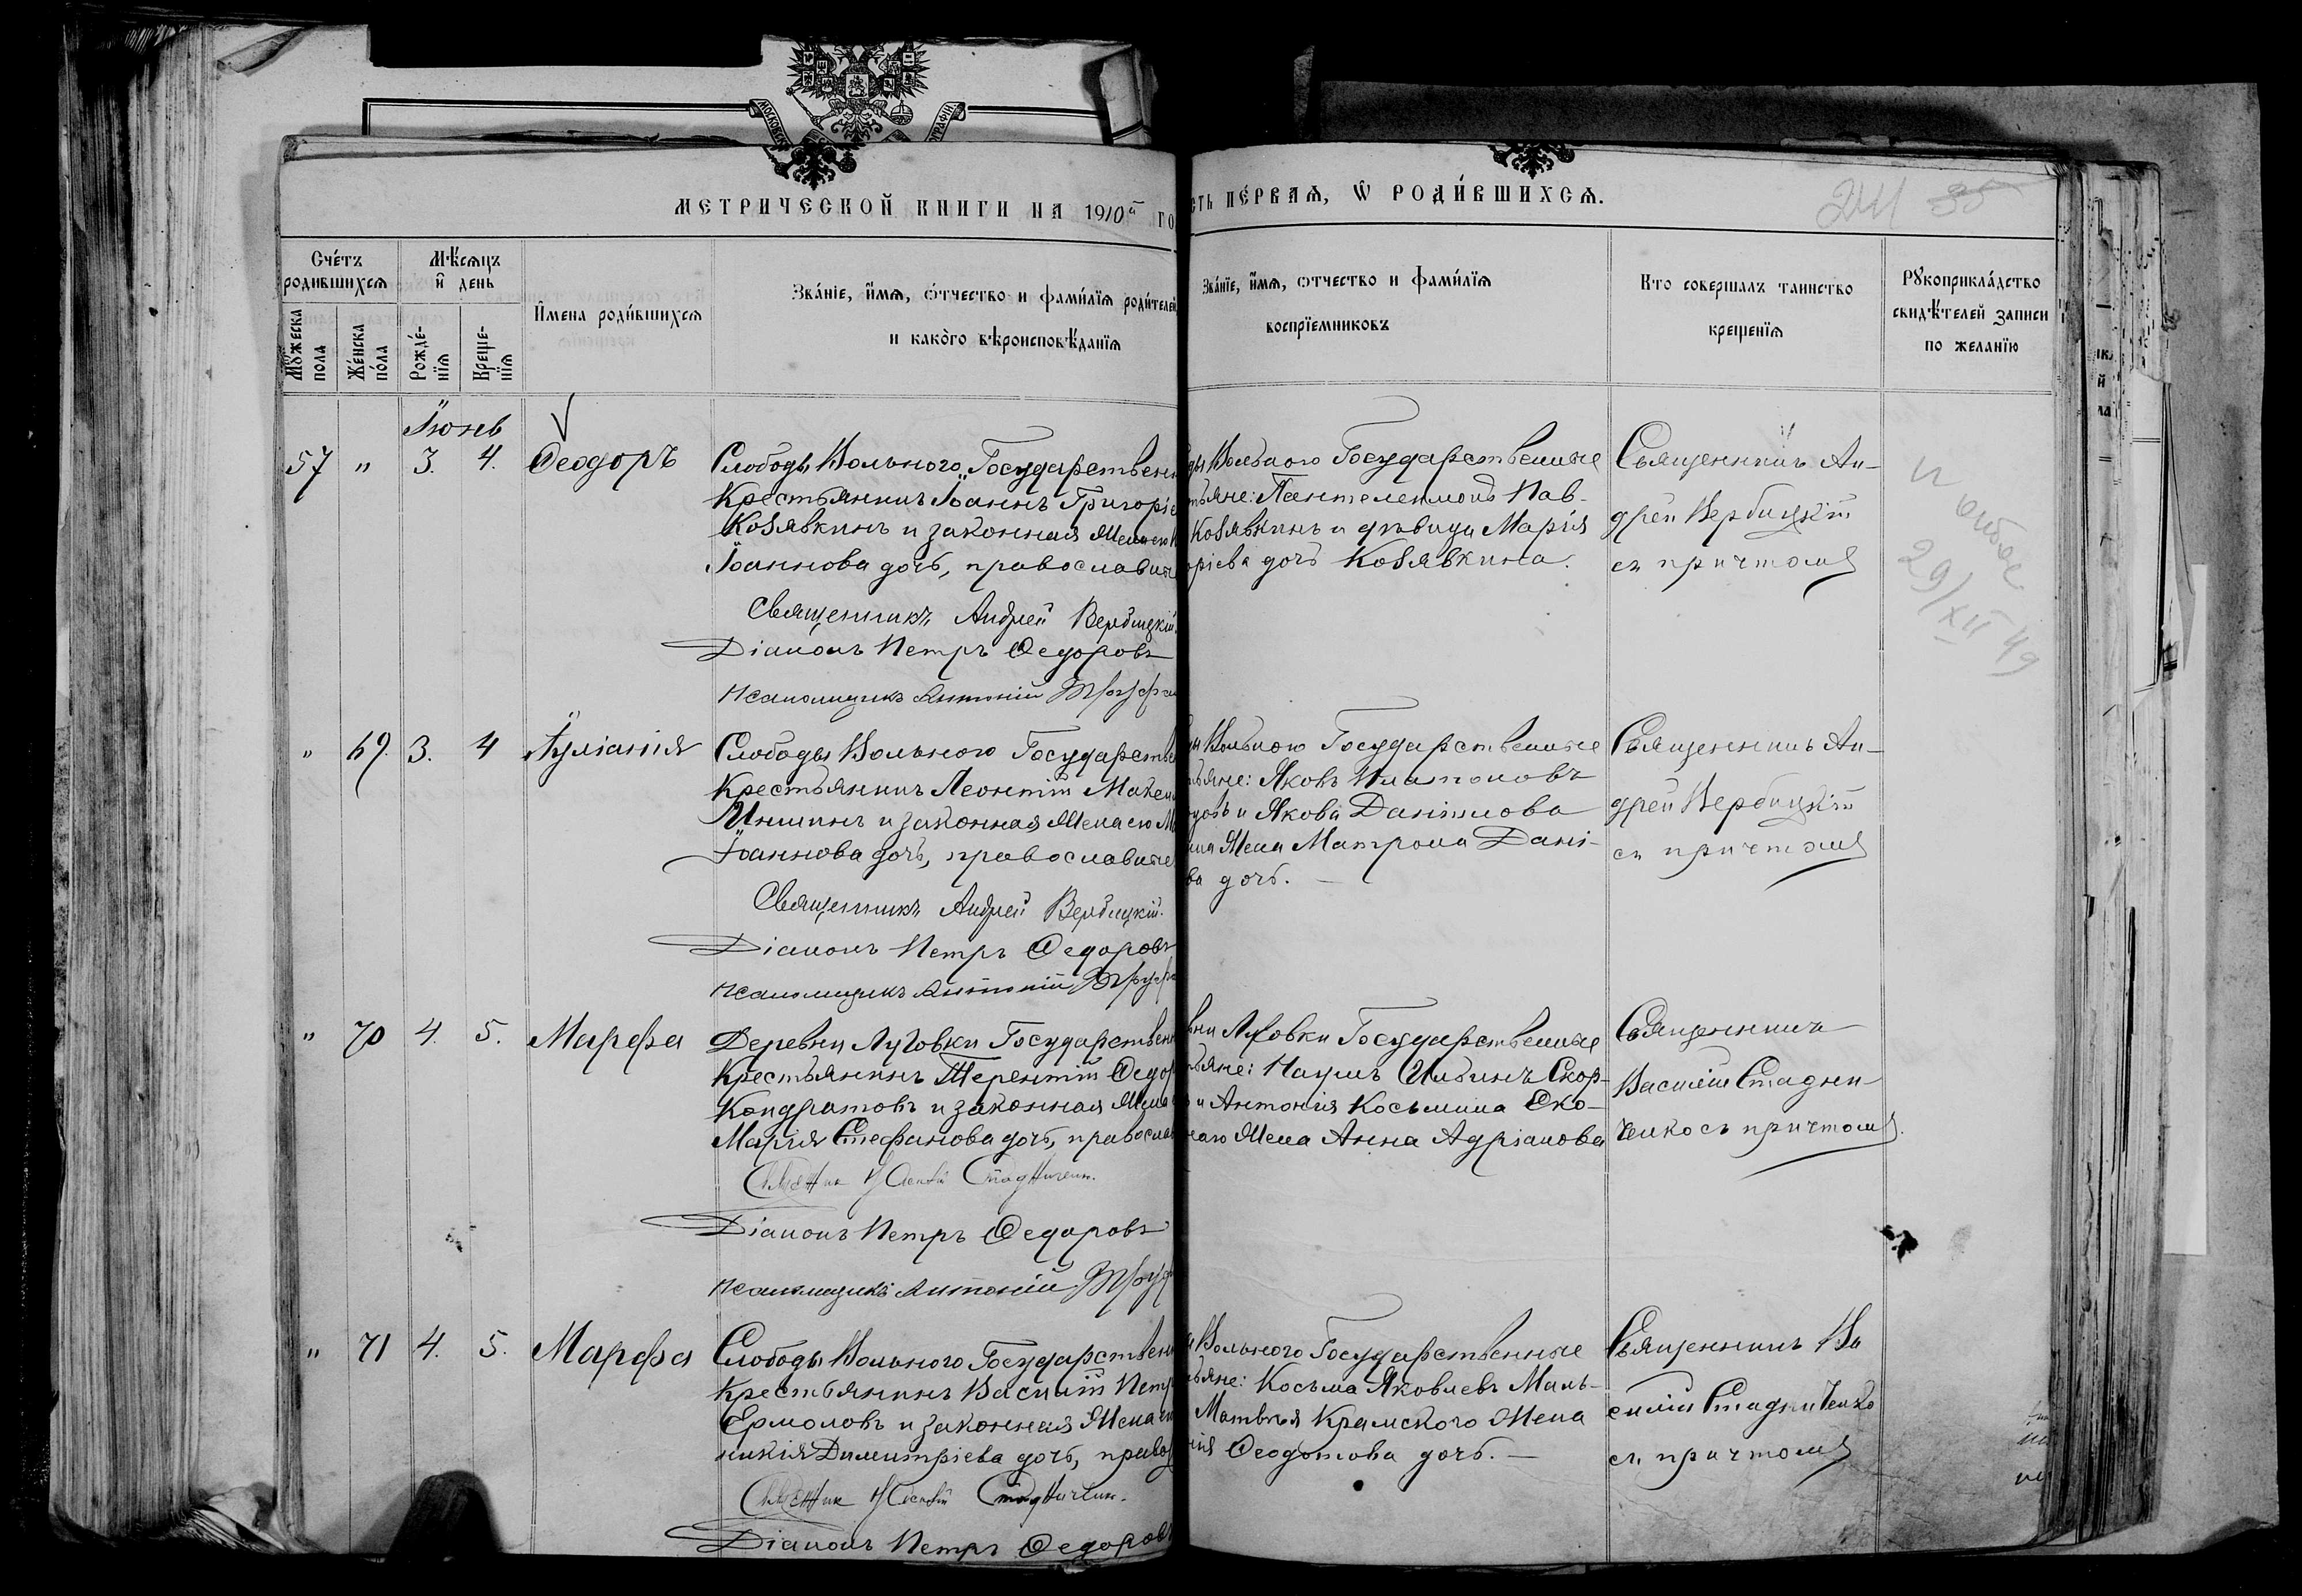 МЕТРИЧЕСКОЙ КНИГИ НА 1910й ГО
СТЬ ПЕ́РВАѦ, Ѡ РОДИ́ВШИХСѦ.
241 35
Сче́тъ родившихсѧ
Мѣ́сѧцъ и҆ день
И҆мена роди́вшихсѧ
Зва́нїе, и҆́мѧ, ѻ҆́тчество и фами́лїѧ роди́телей
и како́го вѣроисповѣ́данїѧ
Мꙋ́жеска пола
Же́нска по́ла
Рожде́-нїѧ
Креще-нїѧ
Зва́нїе, и҆́мѧ, ѻтчество и фами́лїѧ
воспрїемниковъ
Кто совершалъ таинство
крещенїѧ
Рꙋкоприкла́дство
свидѣ́телей записи
по желанїю
Іюнь
57 " 3. 4. Ѳеодоръ
Слободы Вольного Государствен
Крестьянинъ Іоаннъ Григоріе
Козявкинъ и законная Жена его
Іоаннова дочь, православн
Священникъ Андрей Вербицкій.
Діаконъ Петръ Ѳедоровъ
Псаломщикъ Антоній
ды Вольного Государственные
тьяне: Пантелеимонъ Пав-
Козявкинъ и дѣвица Марія
оріева дочь Козявкина.
Священникъ Ан-
дрей Вербицкій
съ причтомъ
29/XII 49
" 69. 3. 4 Іуліанія
Слободы Вольного Государстве
Крестьянинъ Леонтій
и законная Жена его М
Іоаннова дочь, православные
Священникъ Андрей Вербицкій.
Діаконъ Петръ Ѳедоровъ
Псаломщикъ Антоній
ды Вольного Государственные
тьяне: Яковъ Платоновъ
и Якова Даніилова
Жена Матрона Дані-
ва дочь. —
Священникъ Ан-
дрей Вербицкій
съ причтомъ
" 70 4. 5. Марѳа
Деревни Луговки Государствен
Крестьянинъ Терентій Ѳедор
Кондратовъ и законная Жена
Марія Стефанова дочь, правосла
Діаконъ Петръ Ѳедоровъ
Псаломщикъ Антоній
вни Луговки Государственные
тьяне: Наумъ Ильинъ Скор-
и Антонія Косьмина Ско-
наго Жена Анна Адріанова
Священникъ
Василій Стадни-
ченко съ причтомъ.
" 71 4. 5. Марѳа
Слободы Вольного Государствен
Крестьянинъ Василій Петр
Ермоловъ и законная Жена его
никія Димитріева дочь, право
Діаконъ Петръ Ѳедоровъ
ы Вольного Государственные
тьяне: Косьма Яковлевъ Маль-
Матвѣя Крамского Жена
нія Ѳеодотова дочь. —
Священникъ Ва
силій Стадниченко
съ причтомъ